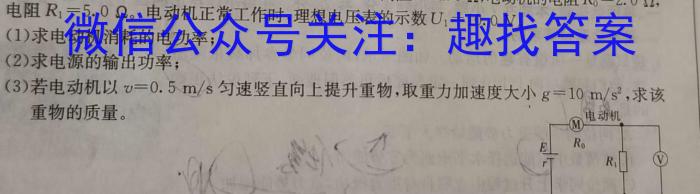 电动机的电阻R₀=2.0 Ω,
电阻R₁=5.0 Ω。电动机正常工作时,理想电压表的示数U₁
(1)求电动机消耗的电功率;
微信公众号关注：趣找答案
(2)求电源的输出功率;
(3)若电动机以v=0.5 m/s匀速竖直向上提升重物,取重力加速度大小g=10 m/s²,求该
重物的质量。
电动机
M
R₀
E
r
R₁
V